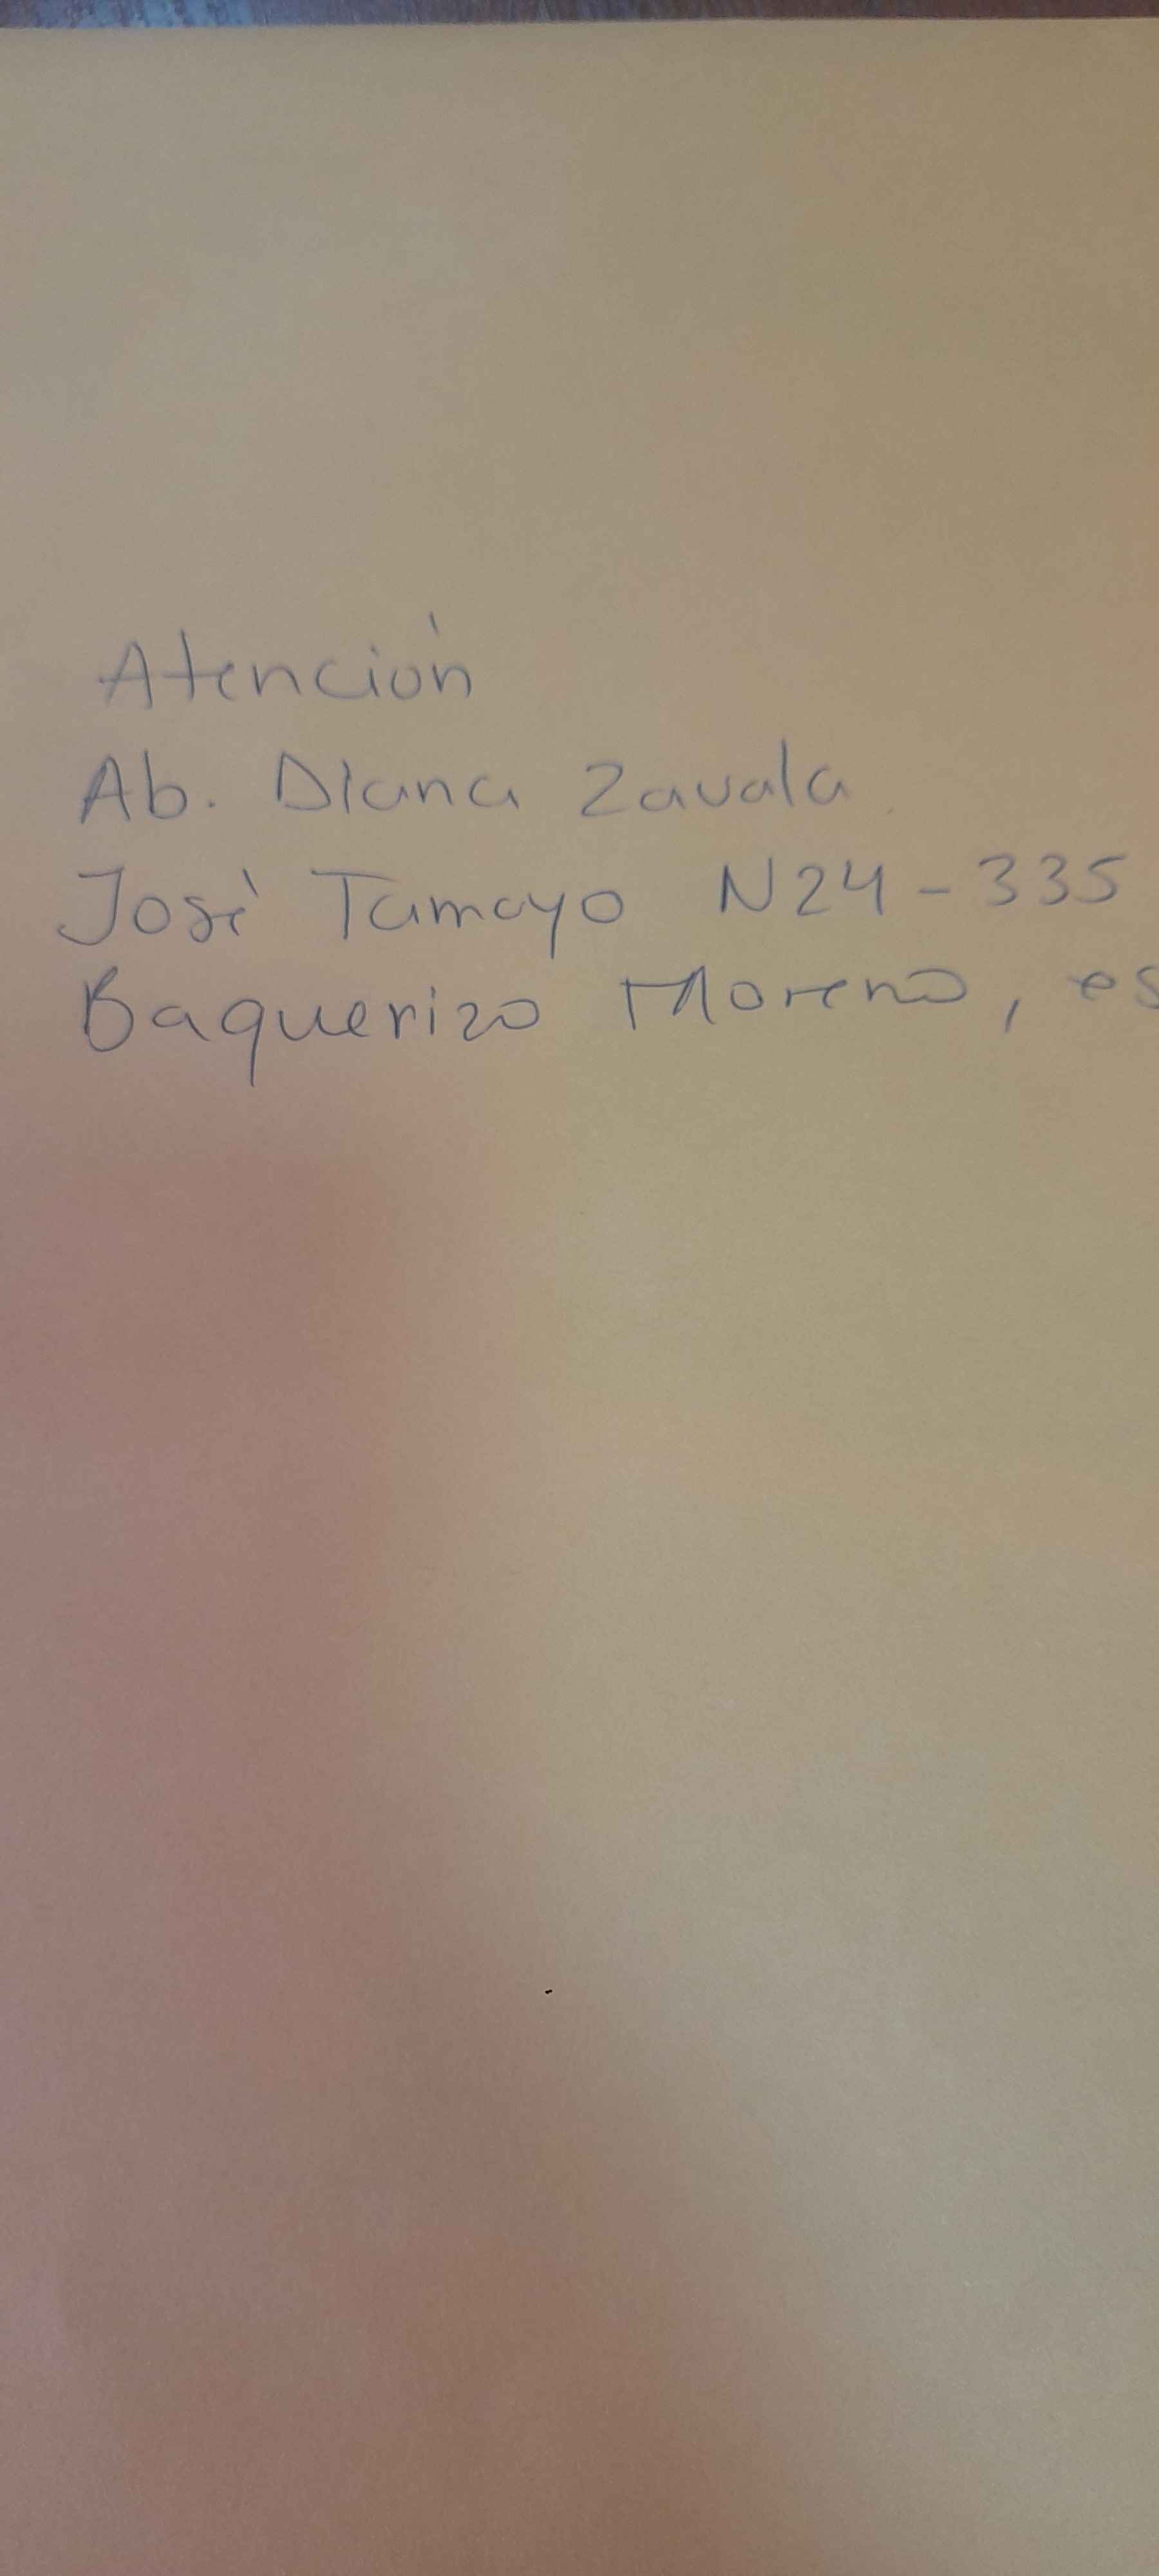 Atención
Ab. Diana Zavala
José Tamayo N24-335
Baquerizo Moreno, es